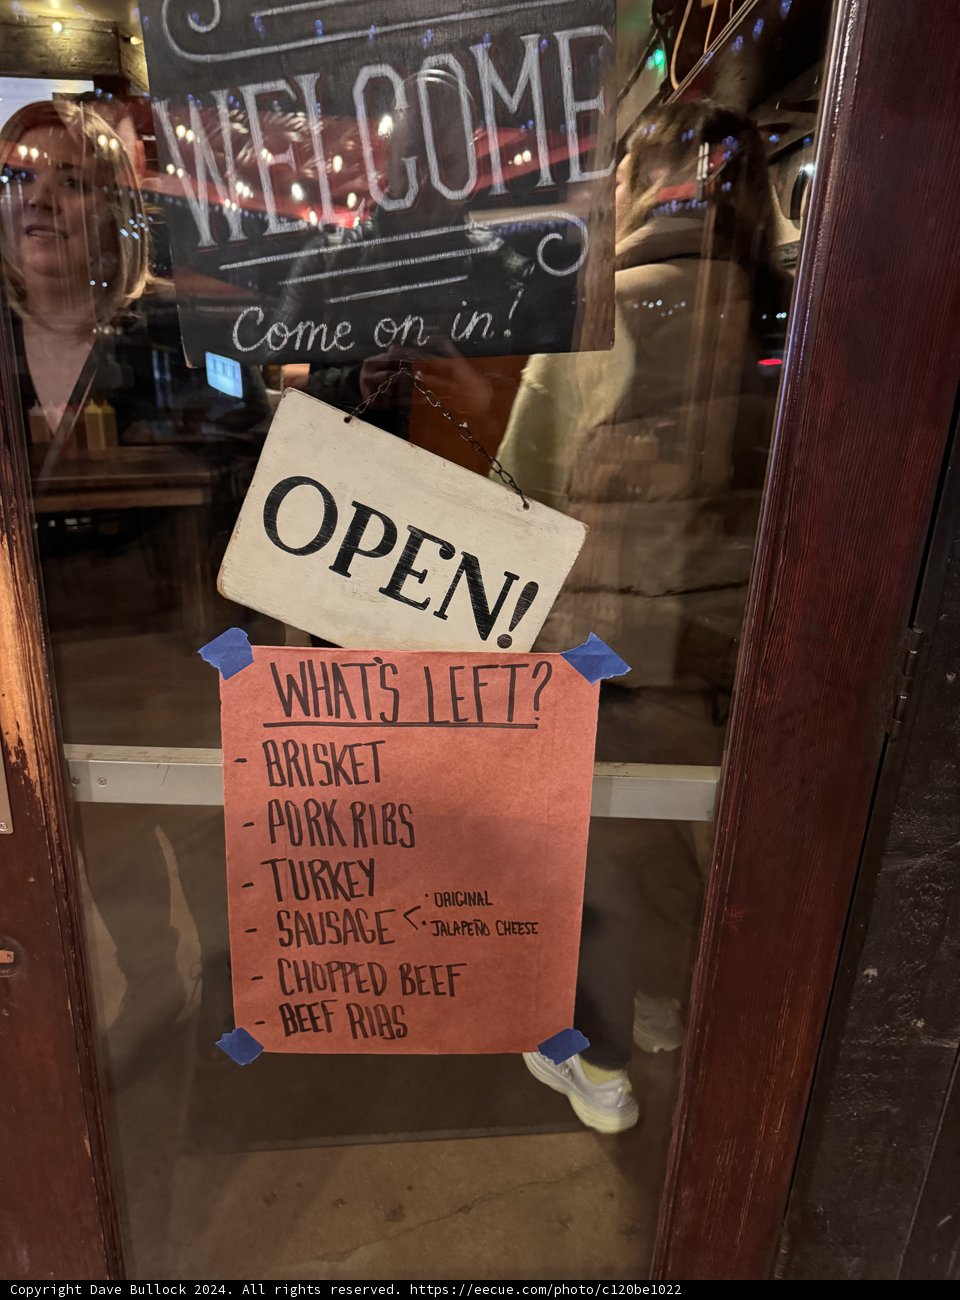 WELCOME
Come on in!
OPEN!
WHAT'S LEFT?
- BRISKET
- PORK RIBS
- TURKEY
- SAUSAGE < · ORIGINAL
· JALAPEÑO CHEESE
- CHOPPED BEEF
- BEEF RIBS
Copyright Dave Bullock 2024. All rights reserved. https://eecue.com/photo/c120be1022